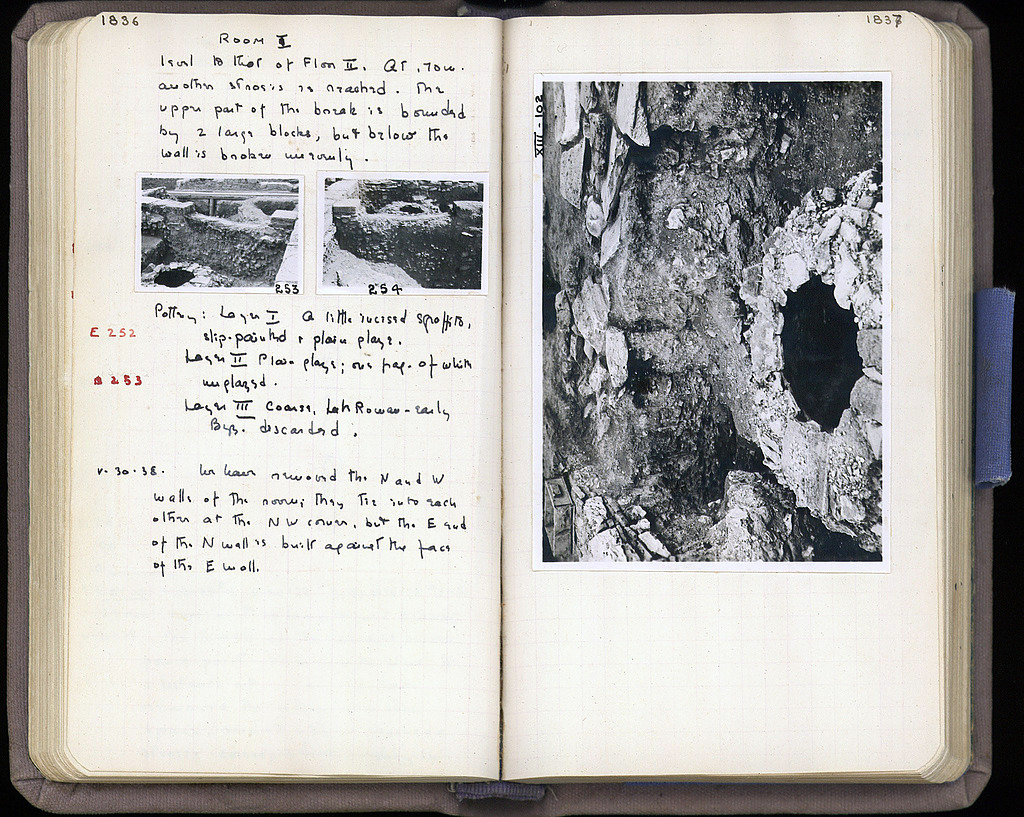 1836
ROOM I
level is that of Floor II. At .70 m.
another strosis is reached. The
upper part of the break is bounded
by 2 large blocks, but below the
wall is broken unevenly.
253
254
Pottery: Layer I A little incised sgraffito,
slip-painted + plain glaze.
E 252
Layer II Plain glaze; one frag. of white
unglazed.
B 253
Layer III Coarse, Late Roman-early
Byz. discarded.
V. 30. 38. We have removed the N and W
walls of the room; they tie into each
other at the NW corner, but the E end
of the N wall is built against the face
of the E wall.
1837
XIII-102